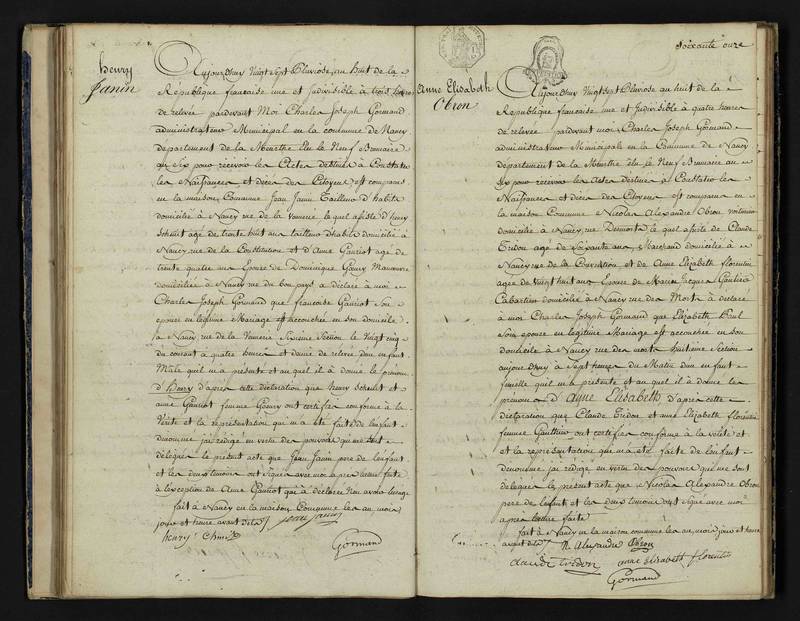 henry
Janin
Aujourd'huy Vingt Sept Pluviose, au huit de la
République française une et Jndivisible à trois heures
de relevée pardevant Moi Charles Joseph Gormand
administrateur Municipal en la commune de Nancy
departement de la Meurthe Elu le Neuf Brumaire
an Six pour recevoir les Actes destinés à Constater
les Naissances et décès des Citoyens est comparus
en la maison Commune Jean Janin Tailleur d'habits
domicilié à Nancy rue de la Venerie lequel assisté d'henry
agé de trente huit ans tailleur d'habits domicilié à
Nancy rue de la Constitution et d'Anne Gauriot agé de
trente quatre ans Epouse de Dominique Manœuvre
domicilié à Nancy rue du bon pays a déclaré à moi
Charles Joseph Gormand que françoise Gauriot Son
epouse en legitime Mariage est accouchée en son domicile
à Nancy rue de la Venerie Section le Vingt cinq
du courant à quatre heures et demie de relevée d'un enfant
Mâle qu'il m'a présenté et au quel il a donné le prénom
d'Henry d'après cette déclaration que henry et
anne Gauriot femme ont certifié conforme à la
Vérité et la représentation qui m'a été faite de l'enfant
denommé jai rédigé en vertu des pouvoirs qui me sont
délégués le présent acte que Jean Janin pere de l'enfant
et les deux temoins ont signés avec moi après lecture faite
à l'exception de Anne Gauriot qui à déclaré Non avoir l'usage
fait à Nancy en la maison Commune les an, mois
jour et heure avant dits jean janin
henry
Gormand
Soixante onze
Anne Elisabeth
Obron
Aujourd'huy Vingt Sept Pluviose an huit de la
République française une et Jndivisible à quatre heures
de relevée pardevant moi Charles Joseph Gormand
administrateur Municipale en la Commune de Nancy
Departement de la Meurthe élu le Neuf Brumaire an
Six pour recevoir les Actes destinés à Constater les
Naissances et décès des Citoyens est comparu en
la maison Commune Nicolas Alexandre Obron
domicilié à Nancy rue Desmorts le quel assisté de Claude
Tridon agé de Soixante ans Marchand domicilié à
Nancy rue de la et de Anne Elizabeth florentin
agée de Vingt huit ans Epouse de Marie Jacques Gaultier
Cabartier domicilié à Nancy rue des Morts à déclaré
à moi Charles Joseph Gormand que Elizabeth Paul
Son épouse en legitime Mariage est accouchée en son
domicile à Nancy rue des morts huitieme Section
aujourd'huy à Sept heures du Matin d'un enfant
femelle quil m'a présenté et au quel il à donné les
prénoms d'Anne Elisabeth d'après cette
declaration que Claude Tridon et anne Elizabeth florentin
femme Gaulthier ont certifiés conforme à la Vérité et
et la représentation qui ma été faite de l'enfant
denommé jai rédigé en vertu des pouvoirs qui me sont
délegués le present acte que Nicolas Alexandre Obron
pere de l'enfant et les deux temoins ont signé avec moi
apres lecture faite
fait à Nancy en la maison commune les an, mois, jour et heure
avant dits N. Alexandre Obron
claude tridon anne Elisabeth florentin
Gormand